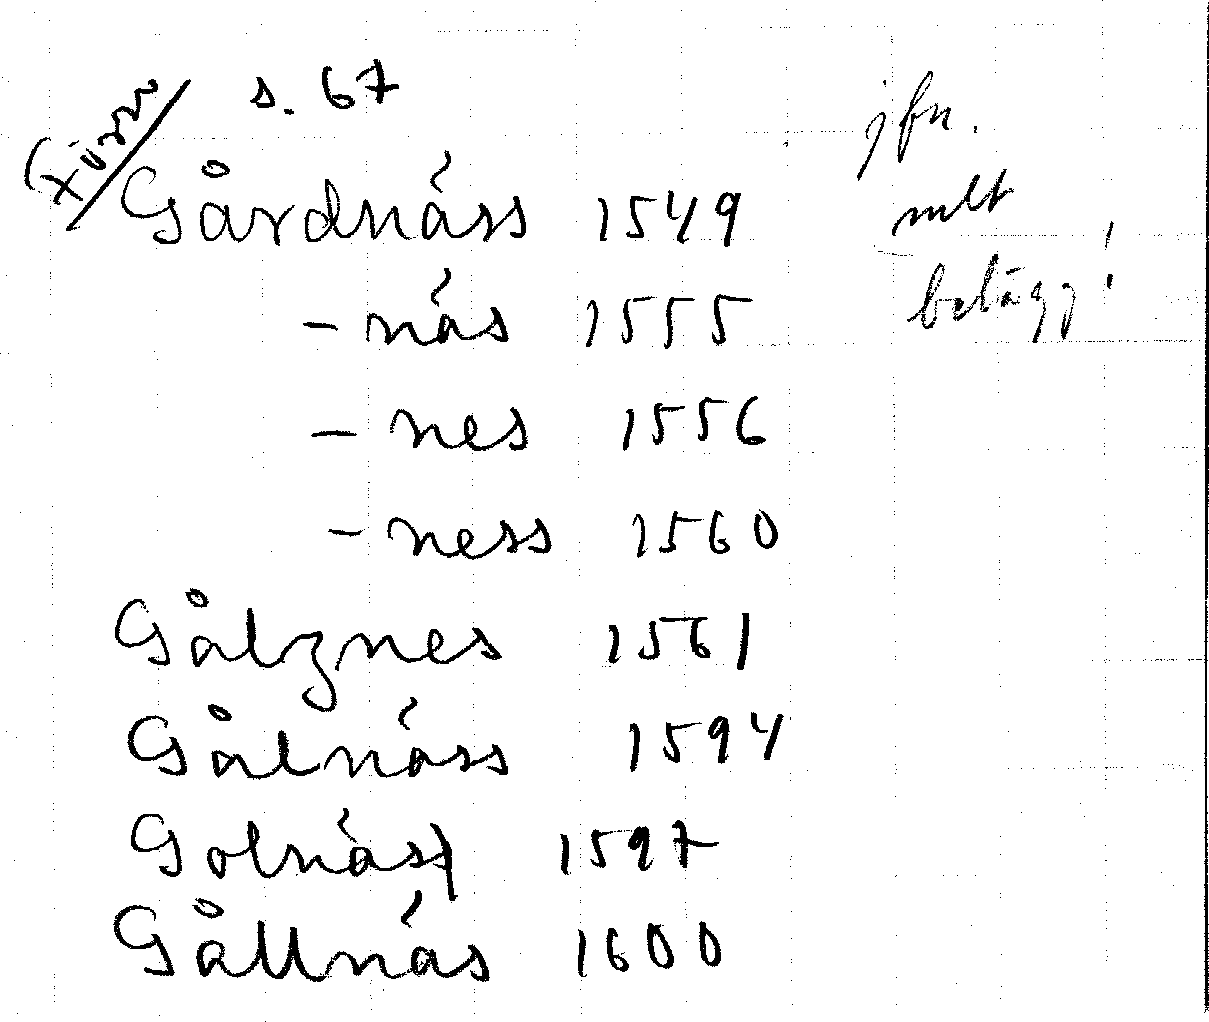 s. 67
Gårdnäss 1549
– näs 1555
– nes 1556
– ness 1560
Gålznes 1561
Gålnäss 1594
Golnäs) 1597
Gållnäs 1600
jfr.
mlt
belägg!